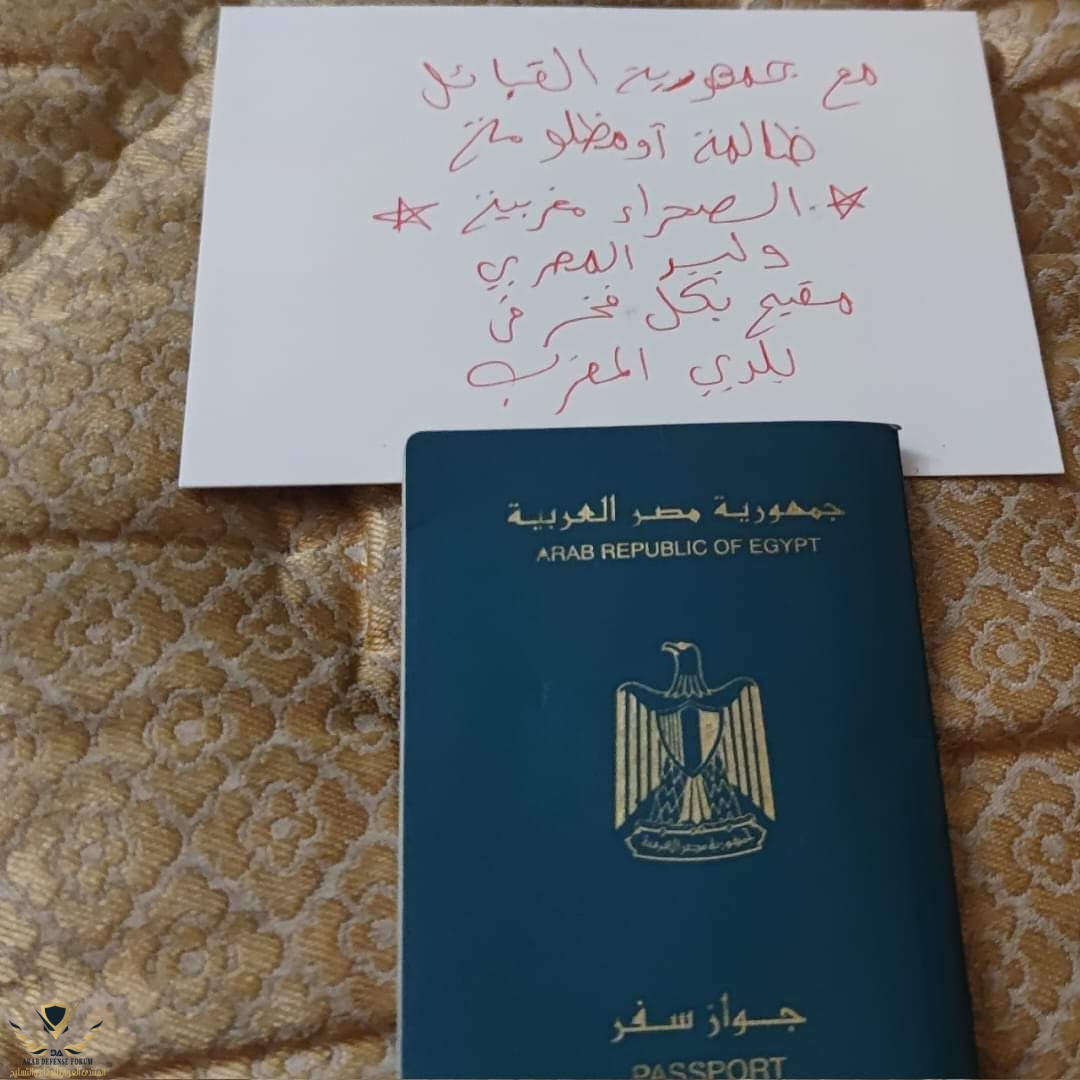 مع جمهورية القبائل
ظالمة أو مظلومة
الصحراء مغربية
وليد المصري
مقيم بكل فخر في
بلدي المغرب
جمهورية مصر العربية
ARAB REPUBLIC OF EGYPT
جمهورية مصر العربية
جواز سفر
PASSPORT
DA
ARAB DEFENSE FORUM
المنتدى العربي للدفاع والتسليح